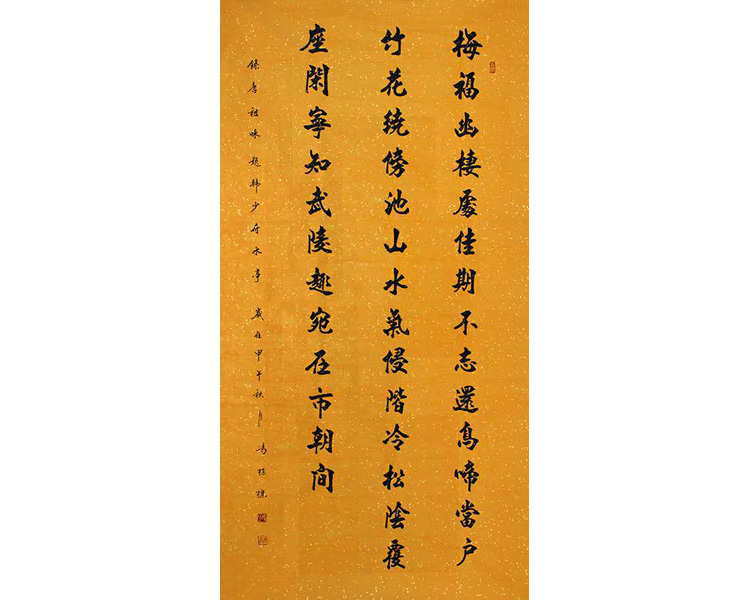 梅福幽棲處佳期不志還鳥啼當戶
竹花繞傍池山水氣侵階冷松陰覆
座閑寧知武陵趣宛在市朝間
錄唐祖咏題韓少府水亭 歲在甲午秋月 馮